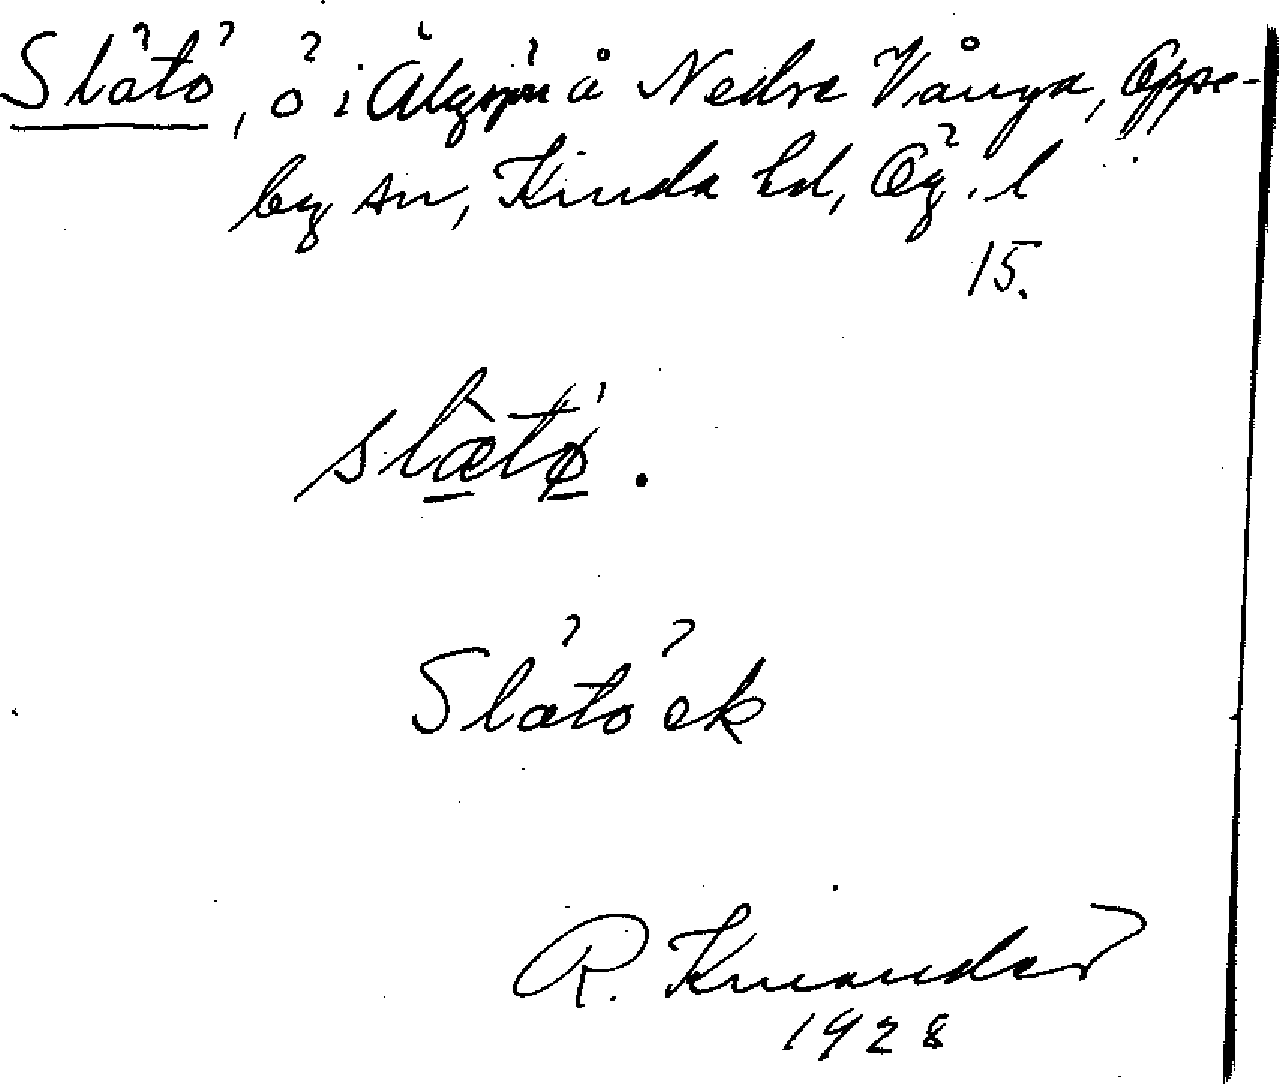 Slätö, ö i Älgsjön å Nedra Vånga, Oppe-
by sn, Kinda hd, Ög. l
15.
slætø.
Slätö ek
R. Kinander
1928